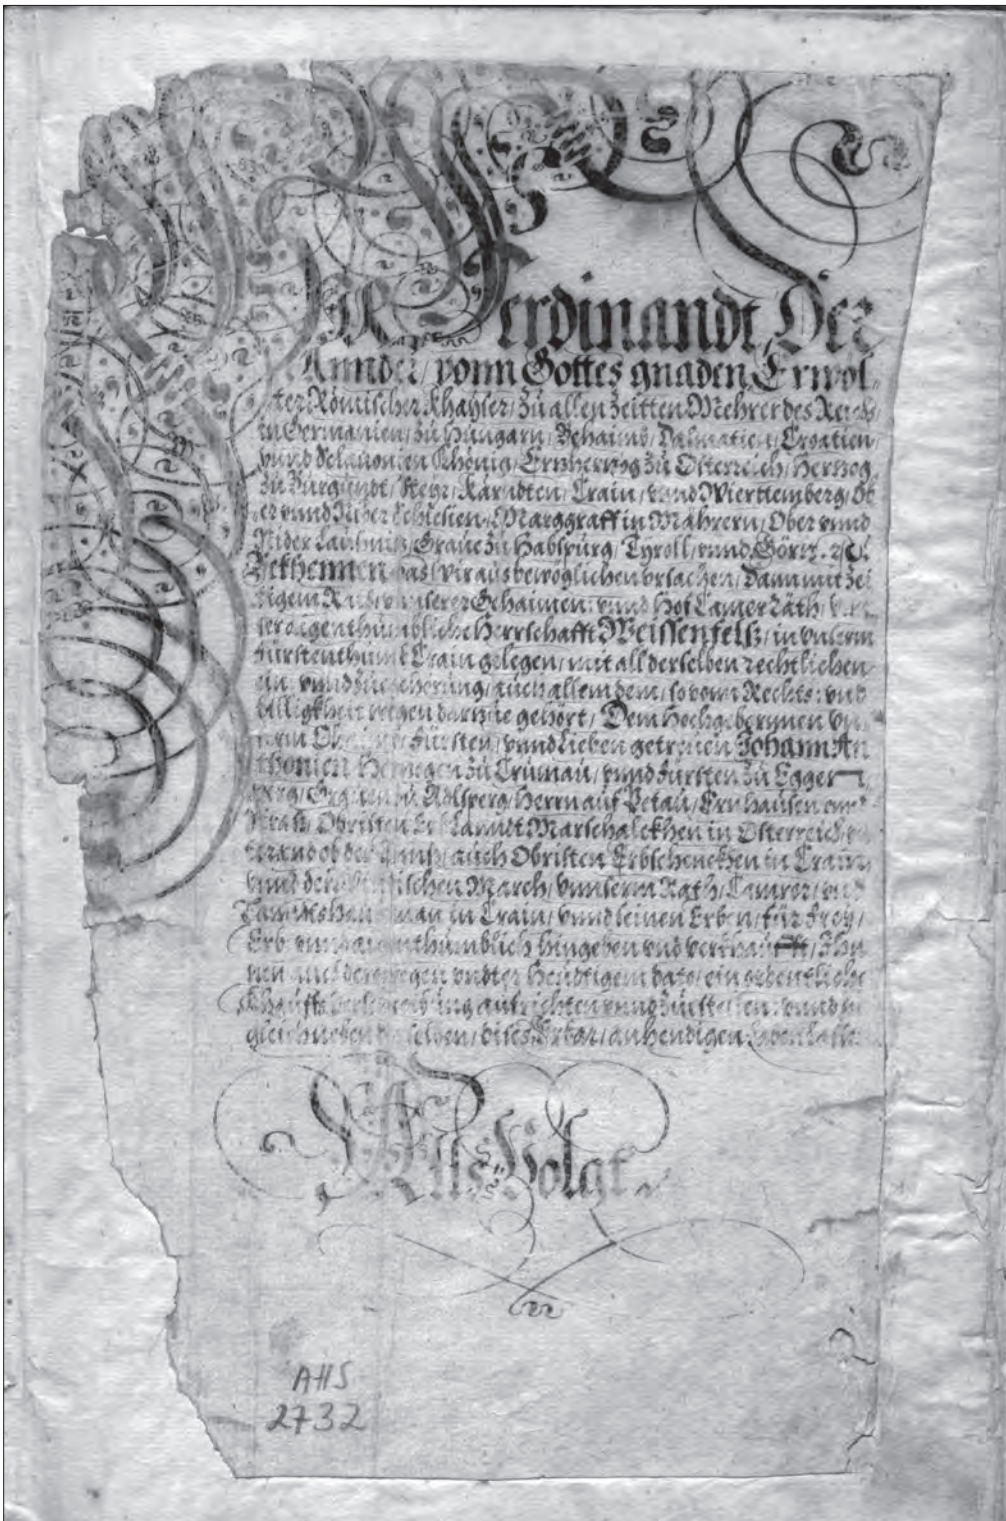 Wir Ferdinandt Der
Annder, vonn Gottes gnaden, Erwöl,
ter Römischer Khayser, zu allen Zeitten Mehrer des Reichs,
in Germanien, zu Hungarn, Behaimb, Dalmatien, Croatien,
vnnd Sclauonien Khönig, Ertzhertzog zu Österreich, Hertzog
zu Burgundt, Steyr, Kärndten, Crain, vnnd Wierttemberg, Ob
er vnnd Nider Schlesien, Marggraff in Mährern, Ober vnnd
Nider Laußnitz, Graue zu Habspurg, Tyroll, vnnd Görtz
Bekhennen das wir aus bewöglichen vrsachen, dann mit zei
tigem Rath, vnnserer Gehaimen, vnnd Hof Camer Räth,
aigenthümbliche Herrschafft Weissenfelß, in vnserm
Fürstenthumb Crain gelegen, mit all derselben rechtlichen
ein vnnd Zuegehörung, auch allem dem, so vonn Rechts vnd
billigkheit wegen darzue gehört, Dem Hochgebornnen
Fürsten, vnnd lieben getreuen Johann An
thonien Hertzogen zu Crumau, vnnd Fürsten zu Egger
berg, Grauen zu Adlsperg, Herrn auf Petau, Ernhausen
Straß, Obristen Erb Lanndt Marschalckhen in Österreich,
ob der Ennß, auch Obristen Erbschenckhen in Crain,
vnnd der Windischen March, vnnserm Rath, Camrer, vnd
Landtshaubtman in Crain, vnnd seinen Erben, für frey,
Erb vnnd aigenthümblich hingeben vnd verkhaufft, Ihn
nen auch derowegen vndter heudtigem dato, ein ordentliche
Khauffs verschreibung aufrichten vnnd zuestellen
gleich neben derselben, dises Urbar, anhendigen lassen
Alls Volgt
AHS
2732